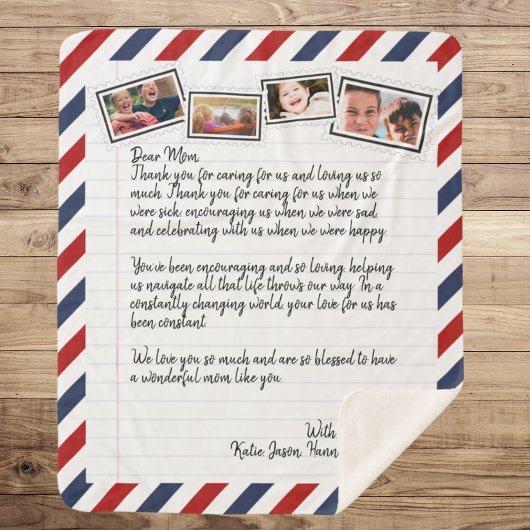 Dear Mom,
Thank you for caring for us and loving us so
much. Thank you for caring for us when we
were sick, encouraging us when we were sad,
and celebrating with us when we were happy.
You've been encouraging and so loving, helping
us navigate all that life throws our way. In a
constantly changing world, your love for us has
been constant.
We love you so much and are so blessed to have
a wonderful mom like you.
With
Katie, Jason, Hann